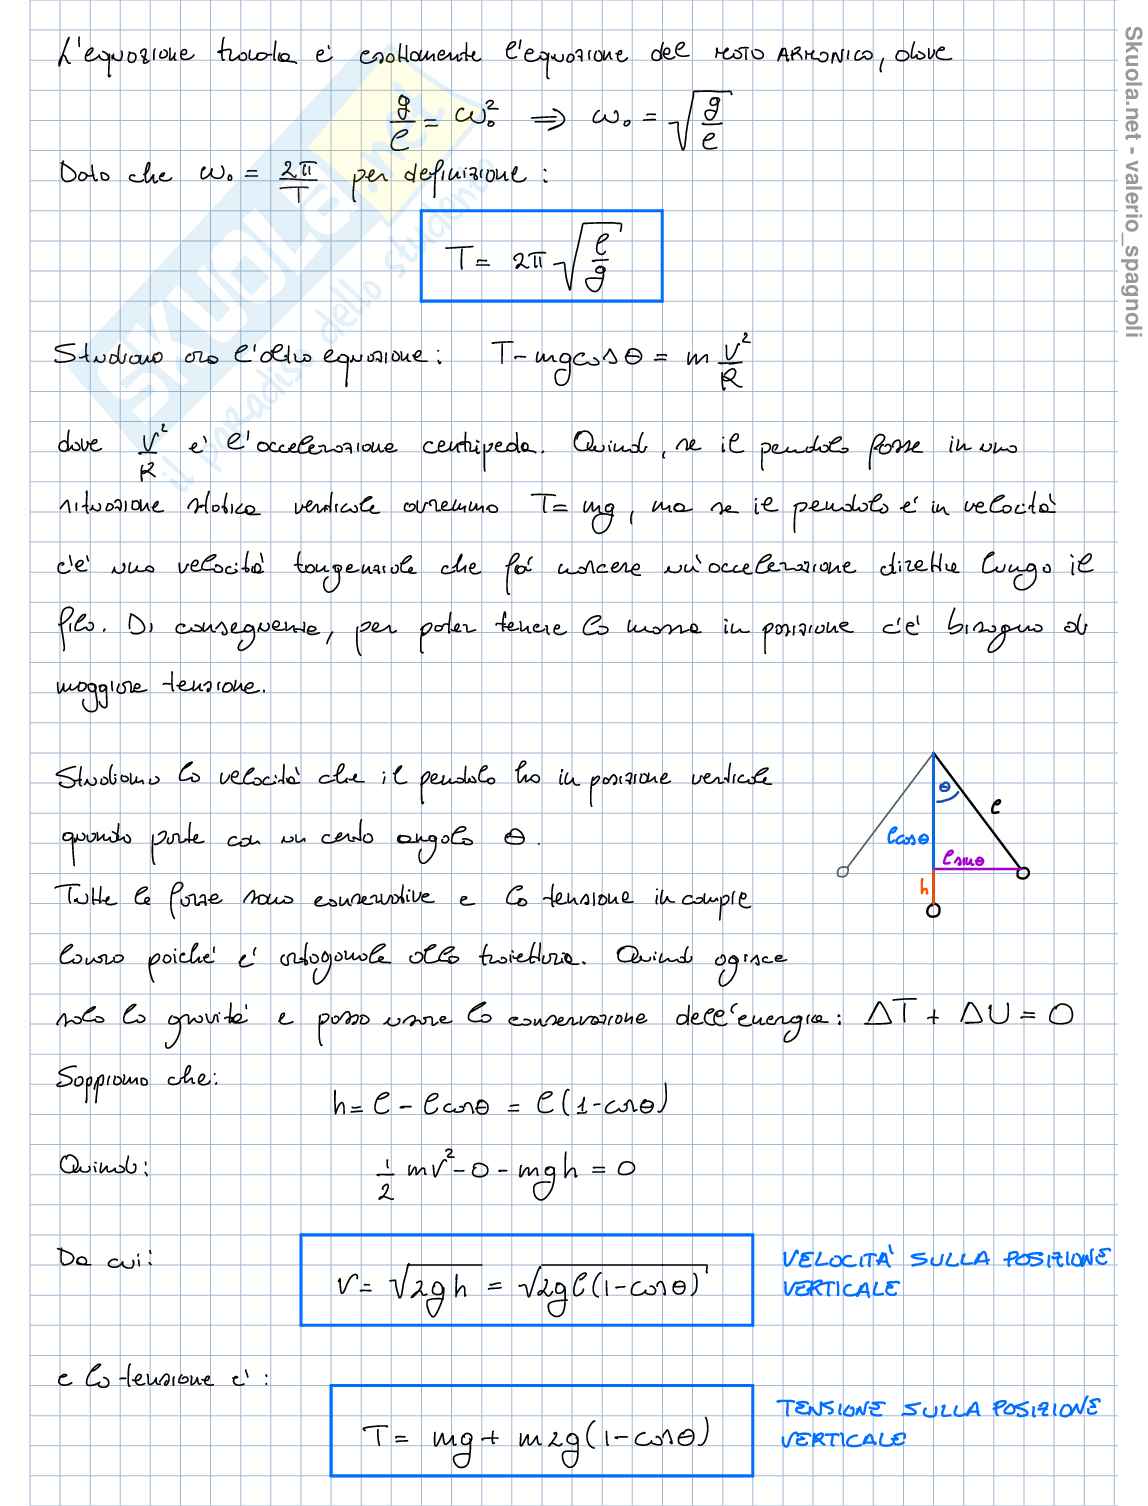 L'equazione trovata è esattamente l'equazione del MOTO ARMONICO, dove
g/l = ω₀² ⟹ ω₀ = √(g/l)
Dato che ω₀ = 2π/T per definizione:
T = 2π √(l/g)
Studiamo ora l'altra equazione: T - mg cos θ = m v²/R
dove v²/R è l'accelerazione centripeda. Quindi, se il pendolo fosse in una
situazione statica verticale avremmo T = mg, ma se il pendolo è in velocità
c'è una velocità tangenziale che fa nascere un'accelerazione diretta lungo il
filo. Di conseguenza, per poter tenere la massa in posizione c'è bisogno di
maggiore tensione.
Studiamo la velocità che il pendolo ha in posizione verticale
quando parte con un certo angolo θ.
Tutte le forze sono conservative e la tensione in compie
lavoro poiché è ortogonale alla traiettoria. Quindi agisce
solo la gravità e posso usare la conservazione dell'energia: ΔT + ΔU = 0
θ
l
lcosθ
lsinθ
h
Sappiamo che:
h = l - lcosθ = l(1-cosθ)
Quindi: 1/2 mv² - 0 - mgh = 0
Da cui: v = √(2gh) = √(2gl(1-cosθ))
VELOCITÀ SULLA POSIZIONE
VERTICALE
e la tensione è:
T = mg + m2g(1-cosθ)
TENSIONE SULLA POSIZIONE
VERTICALE
SKUOLA.net
il paradiso dello studente
Skuola.net - valerio_spagnoli